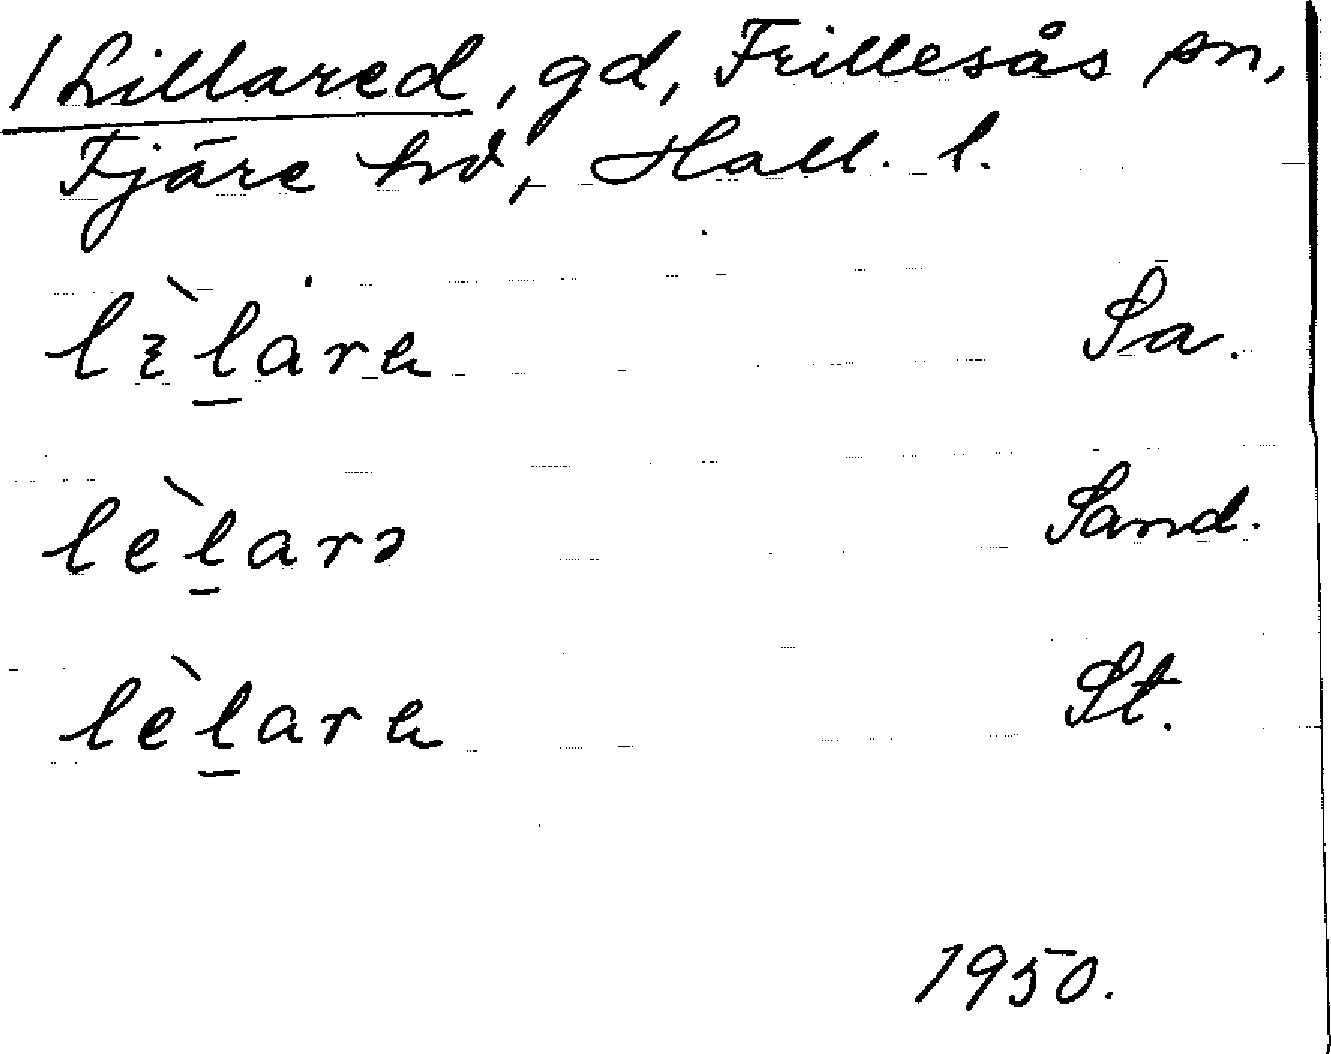 / Lillared, gd, Frillesås sn,
Fjäre hd, Hall. l.
lɛ̀l̲ara Sa.
lèl̲arə Sand.
lèl̲ara St.
1950.